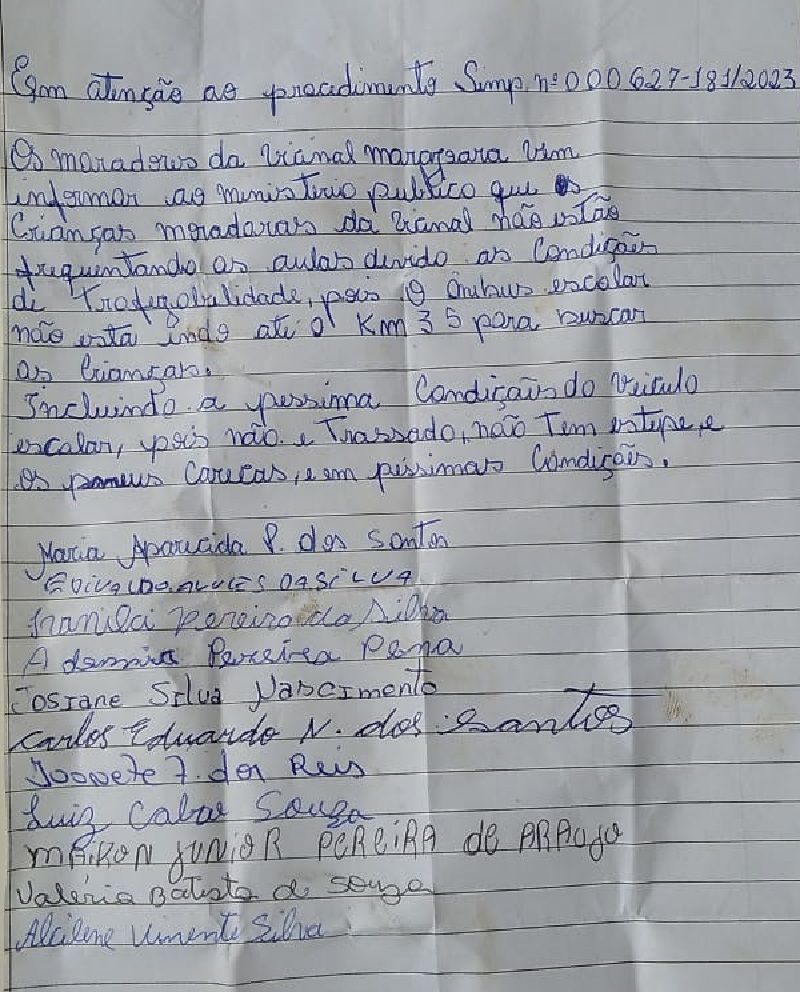 Egm atenção ao procedimento Simp. nº 000627-181/2023
Os maradores da vicinal marajoara vem
informar ao ministerio publico que as
Crianças moradaras da vicinal não estão
frequentando as aulas devido as Condições
de Trafegabilidade, pois o Ônibus escolar
não esta indo ate o Km 35 para buscar
as Crianças.
Incluindo a pessima Condições do Veiculo
escalar, pois não e Trassado, não Tem estepe, e
os pneus Carecas, e em péssimas Condições.
Maria Aparecida P. dos Santos
EDIVALDO ALVES DA SILVA
Pereira da Silva
Pereira Pena
Josiane Silva Nascimento
Carlos Eduardo N. dos Santos
7. dos Reis
Luiz Souza
MAIKON JUNIOR PEREIRA de ARAUJO
Valéria Batista de Souza
Alcilene Vimente Silva